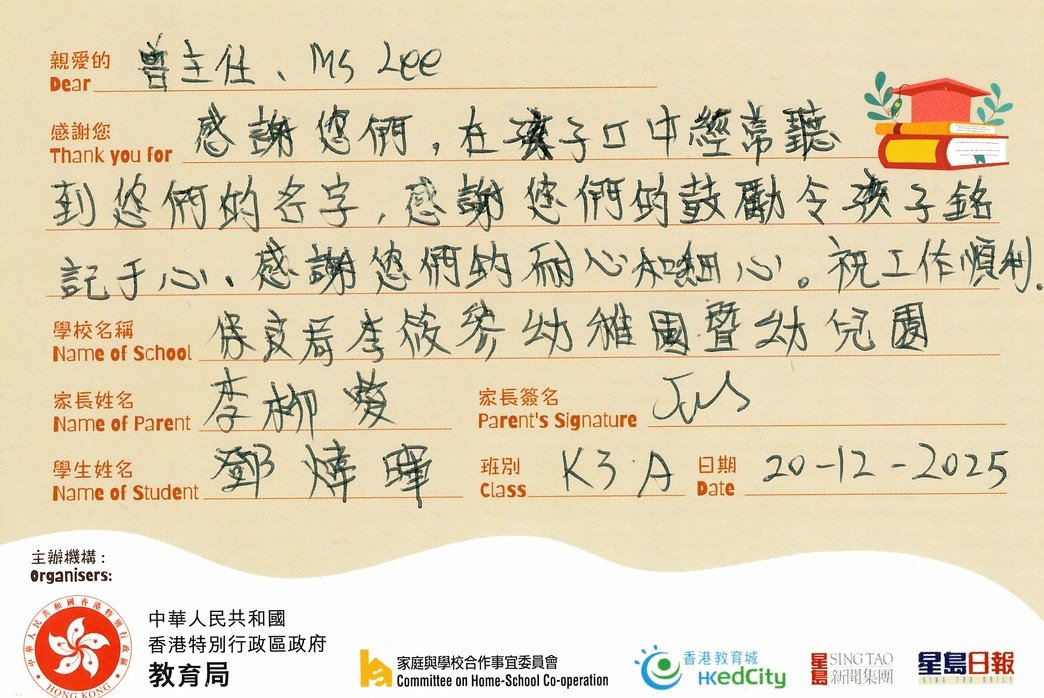 親愛的
Dear 曾主任、Ms Lee
感謝您
Thank you for 感謝您們，在孩子口中經常聽
到您們的名字，感謝您們的鼓勵令孩子銘
記于心。感謝您們的耐心和細心。祝工作順利。
學校名稱
Name of School 保良局李筱參幼稚園暨幼兒園
家長姓名 家長簽名
Name of Parent 李柳愛 Parent's Signature
學生姓名 班別 日期
Name of Student 鄧煒暉 Class K3A Date 20-12-2025
主辦機構：
Organisers:
中華人民共和國
香港特別行政區政府
教育局
中華人民共和國香港特別行政區
HONG KONG
家庭與學校合作事宜委員會
Committee on Home-School Co-operation
香港教育城
HKedCity
星島 SING TAO
新聞集團
星島日報
SING TAO DAILY